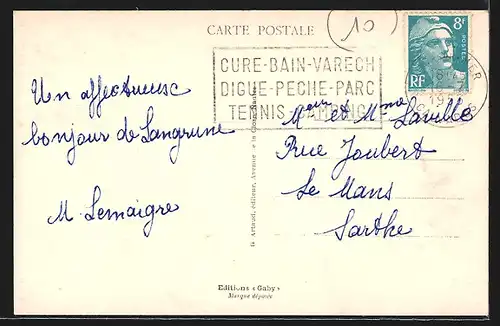 CARTE POSTALE
(10)
8F
POSTES
RF
CURE-BAIN-VARECH
DIGUE-PECHE-PARC
TENNIS-CAMPING
Un affectueux
bonjour de Langrune
M. Lemaigre
Mr et Mme Laville
Rue Joubert
Le Mans
Sarthe
Editions « Gaby »
Marque déposée